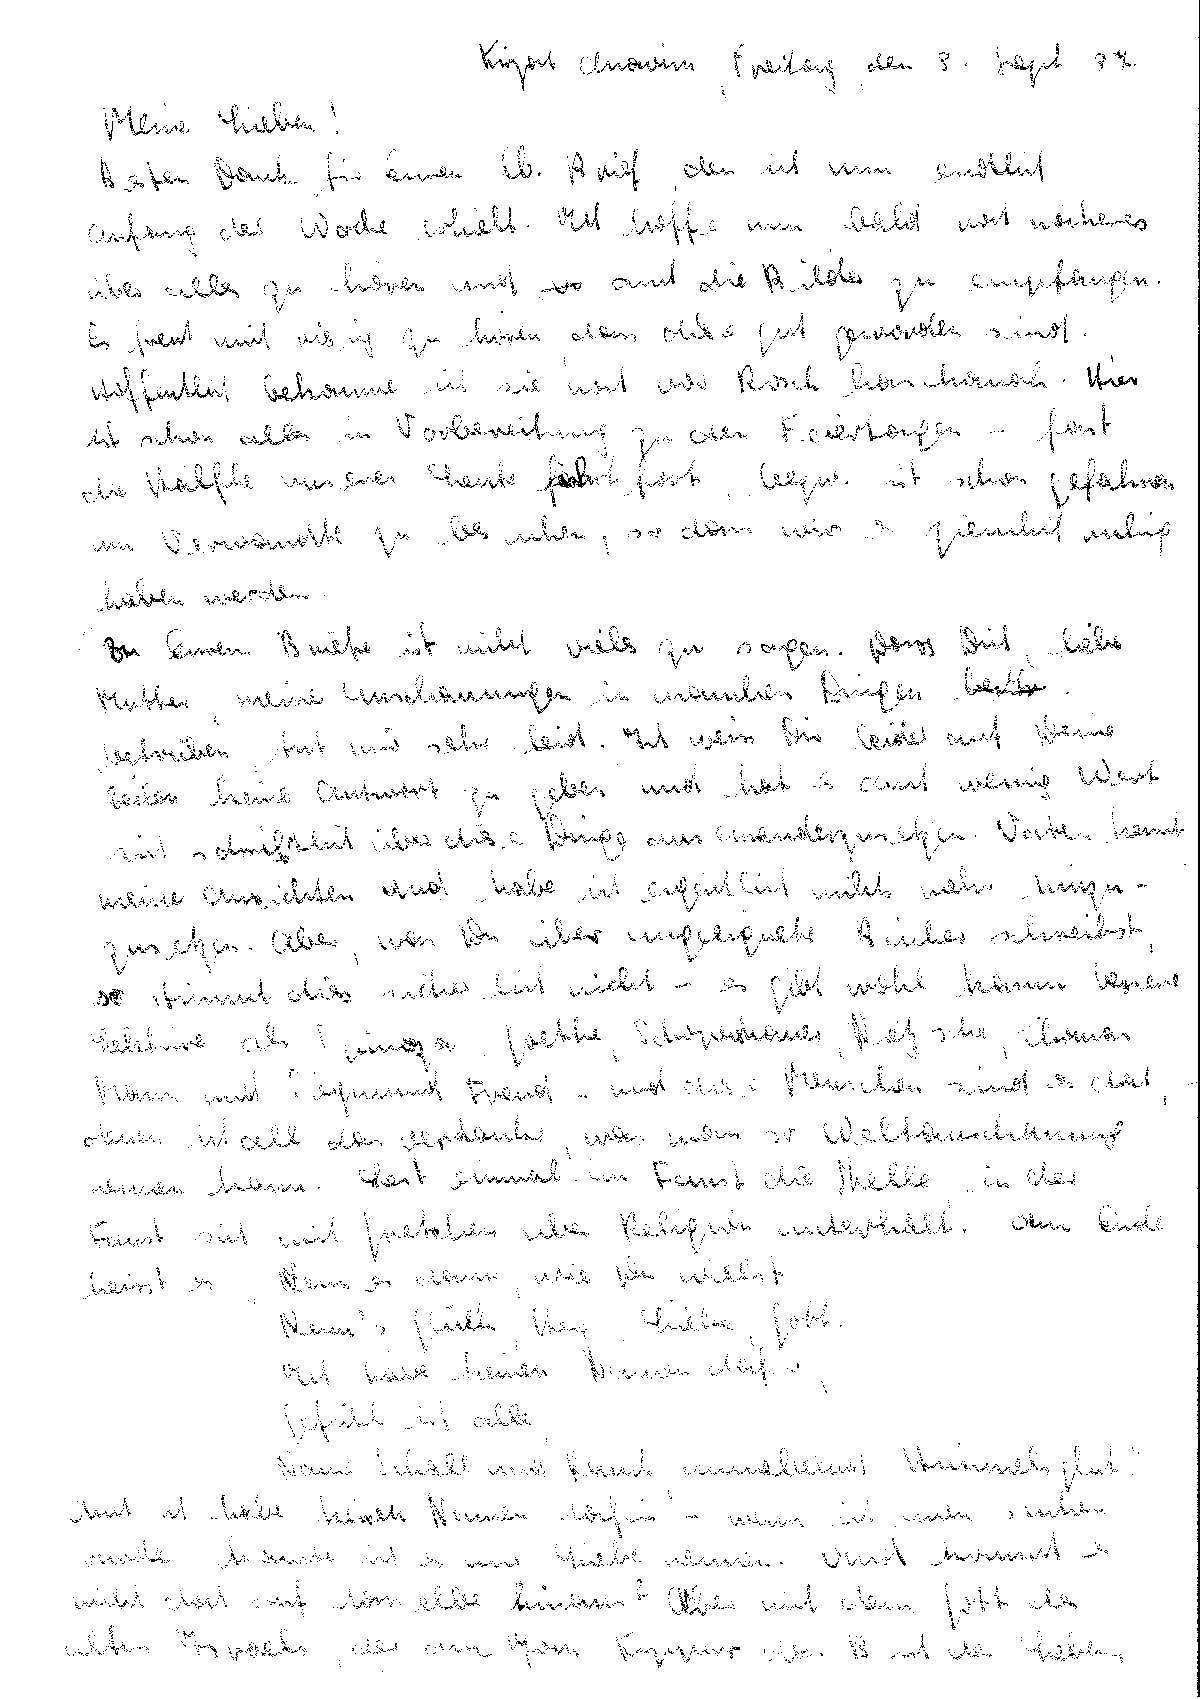 Kirjat Anavim, Freitag, den 3. Sept 37.
Meine Lieben!
Besten Dank für Euren lb. Brief, den ich nun endlich
Anfang der Woche erhielt. Ich hoffe nun bald noch näheres
über alles zu hören und so auch die Bilder zu empfangen.
Es freut mich riesig zu hören dass diese gut geworden sind.
Hoffentlich bekomme ich sie noch vor Rosch haschanah. Hier
ist schon alles in Vorbereitung zu den Feiertagen - fast
die Hälfte unserer Leute fährt fort, bezw. ist schon gefahren
um Verwandte zu besuchen, so dass wir es ziemlich ruhig
haben werden.
Zu Eurem Briefe ist nicht viel zu sagen. Dass Dich, liebe
Mutter, meine Anschauungen in manchen Dingen
betrüben, tut mir sehr leid. Ich weiss Dir leider auf Deine
Zeilen keine Antwort zu geben und hat es auch wenig Wert
sich schriftlich über diese Dinge auseinanderzusetzen. Vater kennt
meine Ansichten und habe ich eigentlich nichts mehr hinzu-
zusetzen. Aber, was Du über ungeeignete Bücher schreibst,
so stimmt dies sicherlich nicht - es gibt wohl kaum bessere
Lektüre als Spinoza, Goethe, Schopenhauer, Nietzsche, Thomas
Mann und Sigmund Freud - und diese Menschen sind es doch,
denen ich all das verdanke, was man so Weltanschauung
nennen kann. Lest einmal im Faust die Stelle, in der
Faust sich mit Gretchen über Religion unterhält. Am Ende
heisst es, Nenn es dann, wie Du willst
Nenn's Glück, Herz, Liebe, Gott.
Ich habe keinen Namen dafür,
Gefühl ist alles
Name Schall und Rauch umnebelnd Himmelsglut."
Auch ich habe keinen Namen dafür - wenn ich einen suchen
würde könnte ich es nur Liebe nennen. Und kommt es
nicht doch auf dasselbe hinaus? Aber mit dem Gott des
alten Israels, der am Jom Kippur der B ist der Leben,